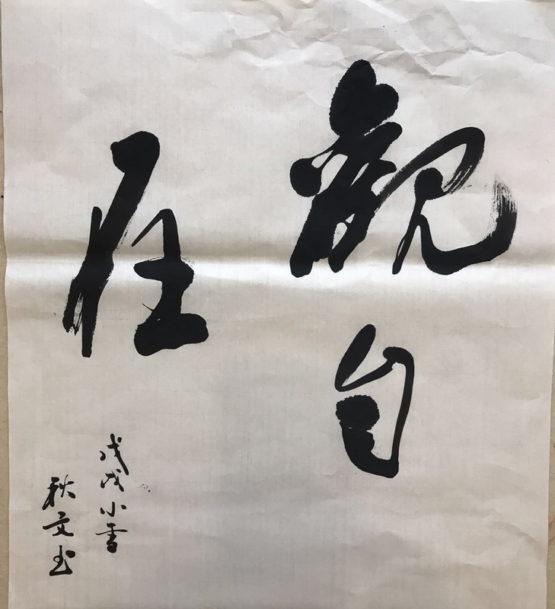 觀自
在
戊戌小雪
秋文书